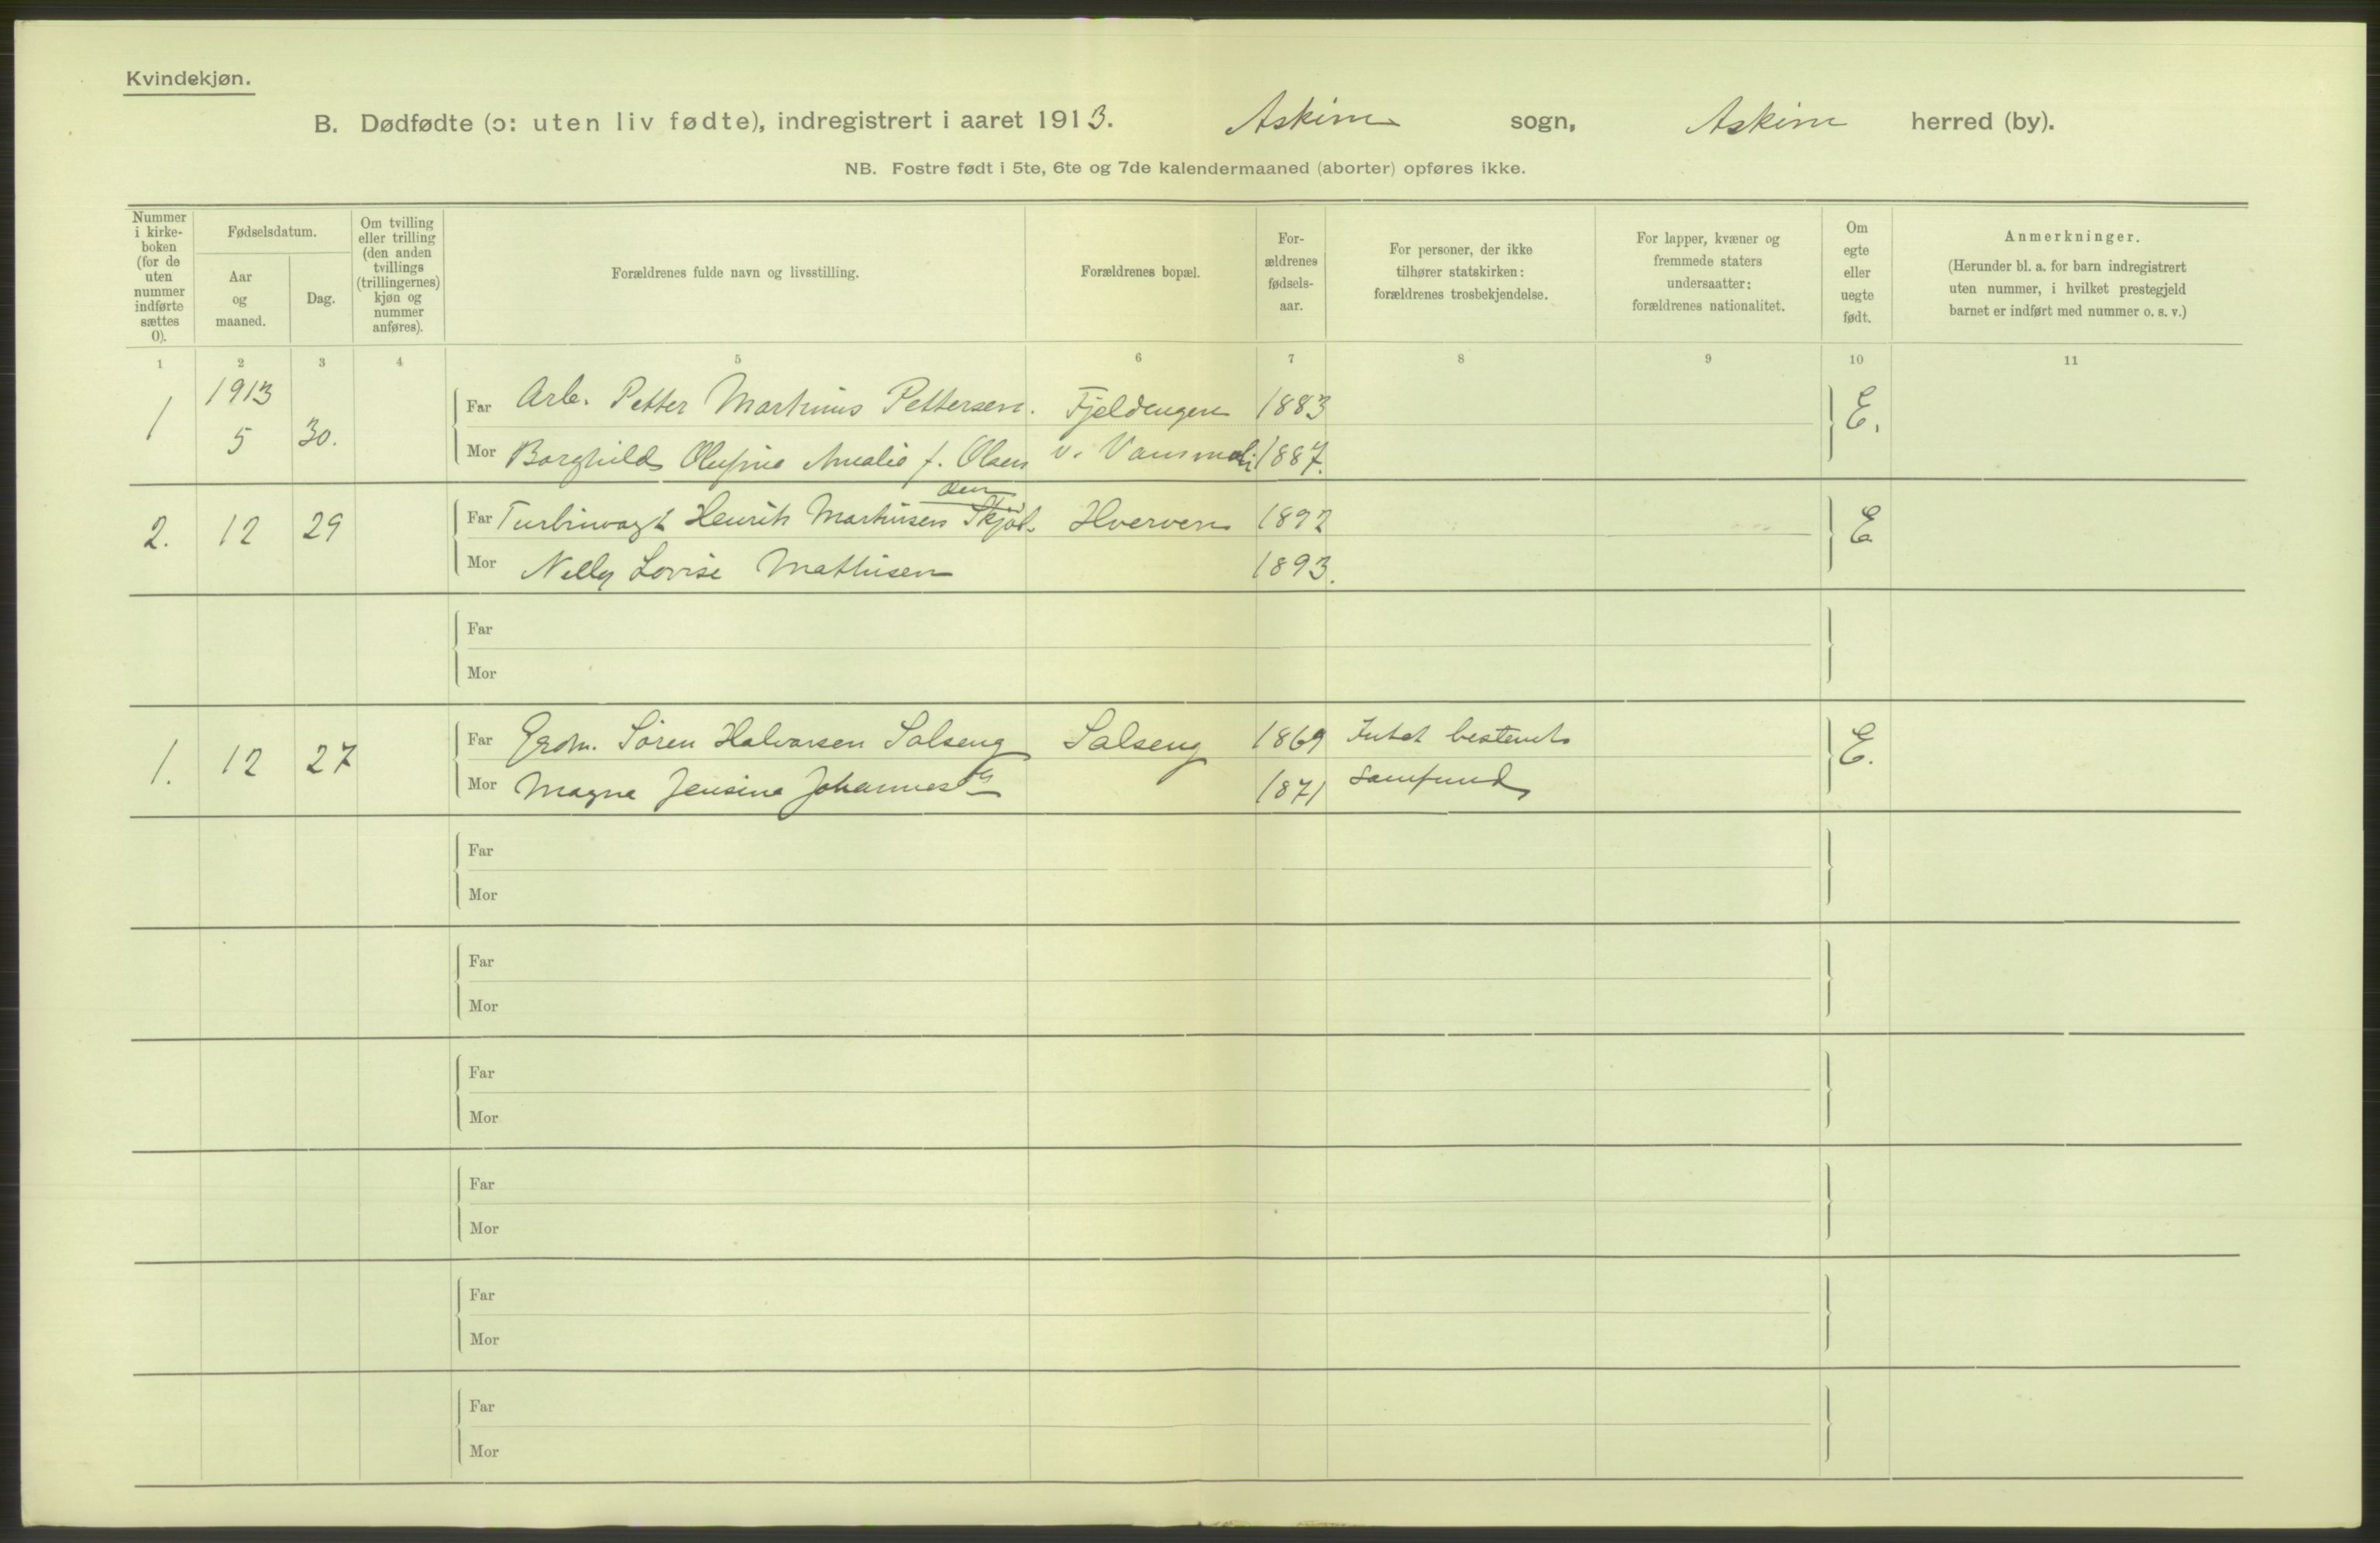 Kvindekjøn.
B. Dødfødte (ɔ: uten liv fødte), indregistrert i aaret 1913. Askim sogn, Askim herred (by).
NB. Fostre født i 5te, 6te og 7de kalendermaaned (aborter) opføres ikke.
Nummer
i kirke-
boken
(for de
uten
nummer
indførte
sættes
0).
Fødselsdatum.
Aar
og
maaned.
Dag.
Om tvilling
eller trilling
(den anden
tvillings
(trillingernes)
kjøn og
nummer
anføres).
Forældrenes fulde navn og livsstilling.
Forældrenes bopæl.
For-
ældrenes
fødsels-
aar.
For personer, der ikke
tilhører statskirken:
forældrenes trosbekjendelse.
For lapper, kvæner og
fremmede staters
undersaatter:
forældrenes nationalitet.
Om
egte
eller
uegte
født.
Anmerkninger.
(Herunder bl. a. for barn indregistrert
uten nummer, i hvilket prestegjeld
barnet er indført med nummer o. s. v.)
1 2 3 4 5 6 7 8 9 10 11
1913
Far Arb. Petter Martinius Pettersen. Fjeldengen 1883
1 5 30. E.
Mor Borghild Olufine Amalie f. Olsen v. 1887.
den
Far Turbinvagt Henrik Martinsen Skjöl- Hverven 1892
2. 12 29 E
Mor Nelly Lovise Mathisen 1893.
Far
Mor
Far Grdm. Sören Halvorsen Solseng Solseng 1869 Intet bestemt
1. 12 27 E.
Mor Magna Jensine Johannesdtr 1871 samfund
Far
Mor
Far
Mor
Far
Mor
Far
Mor
Far
Mor
Far
Mor